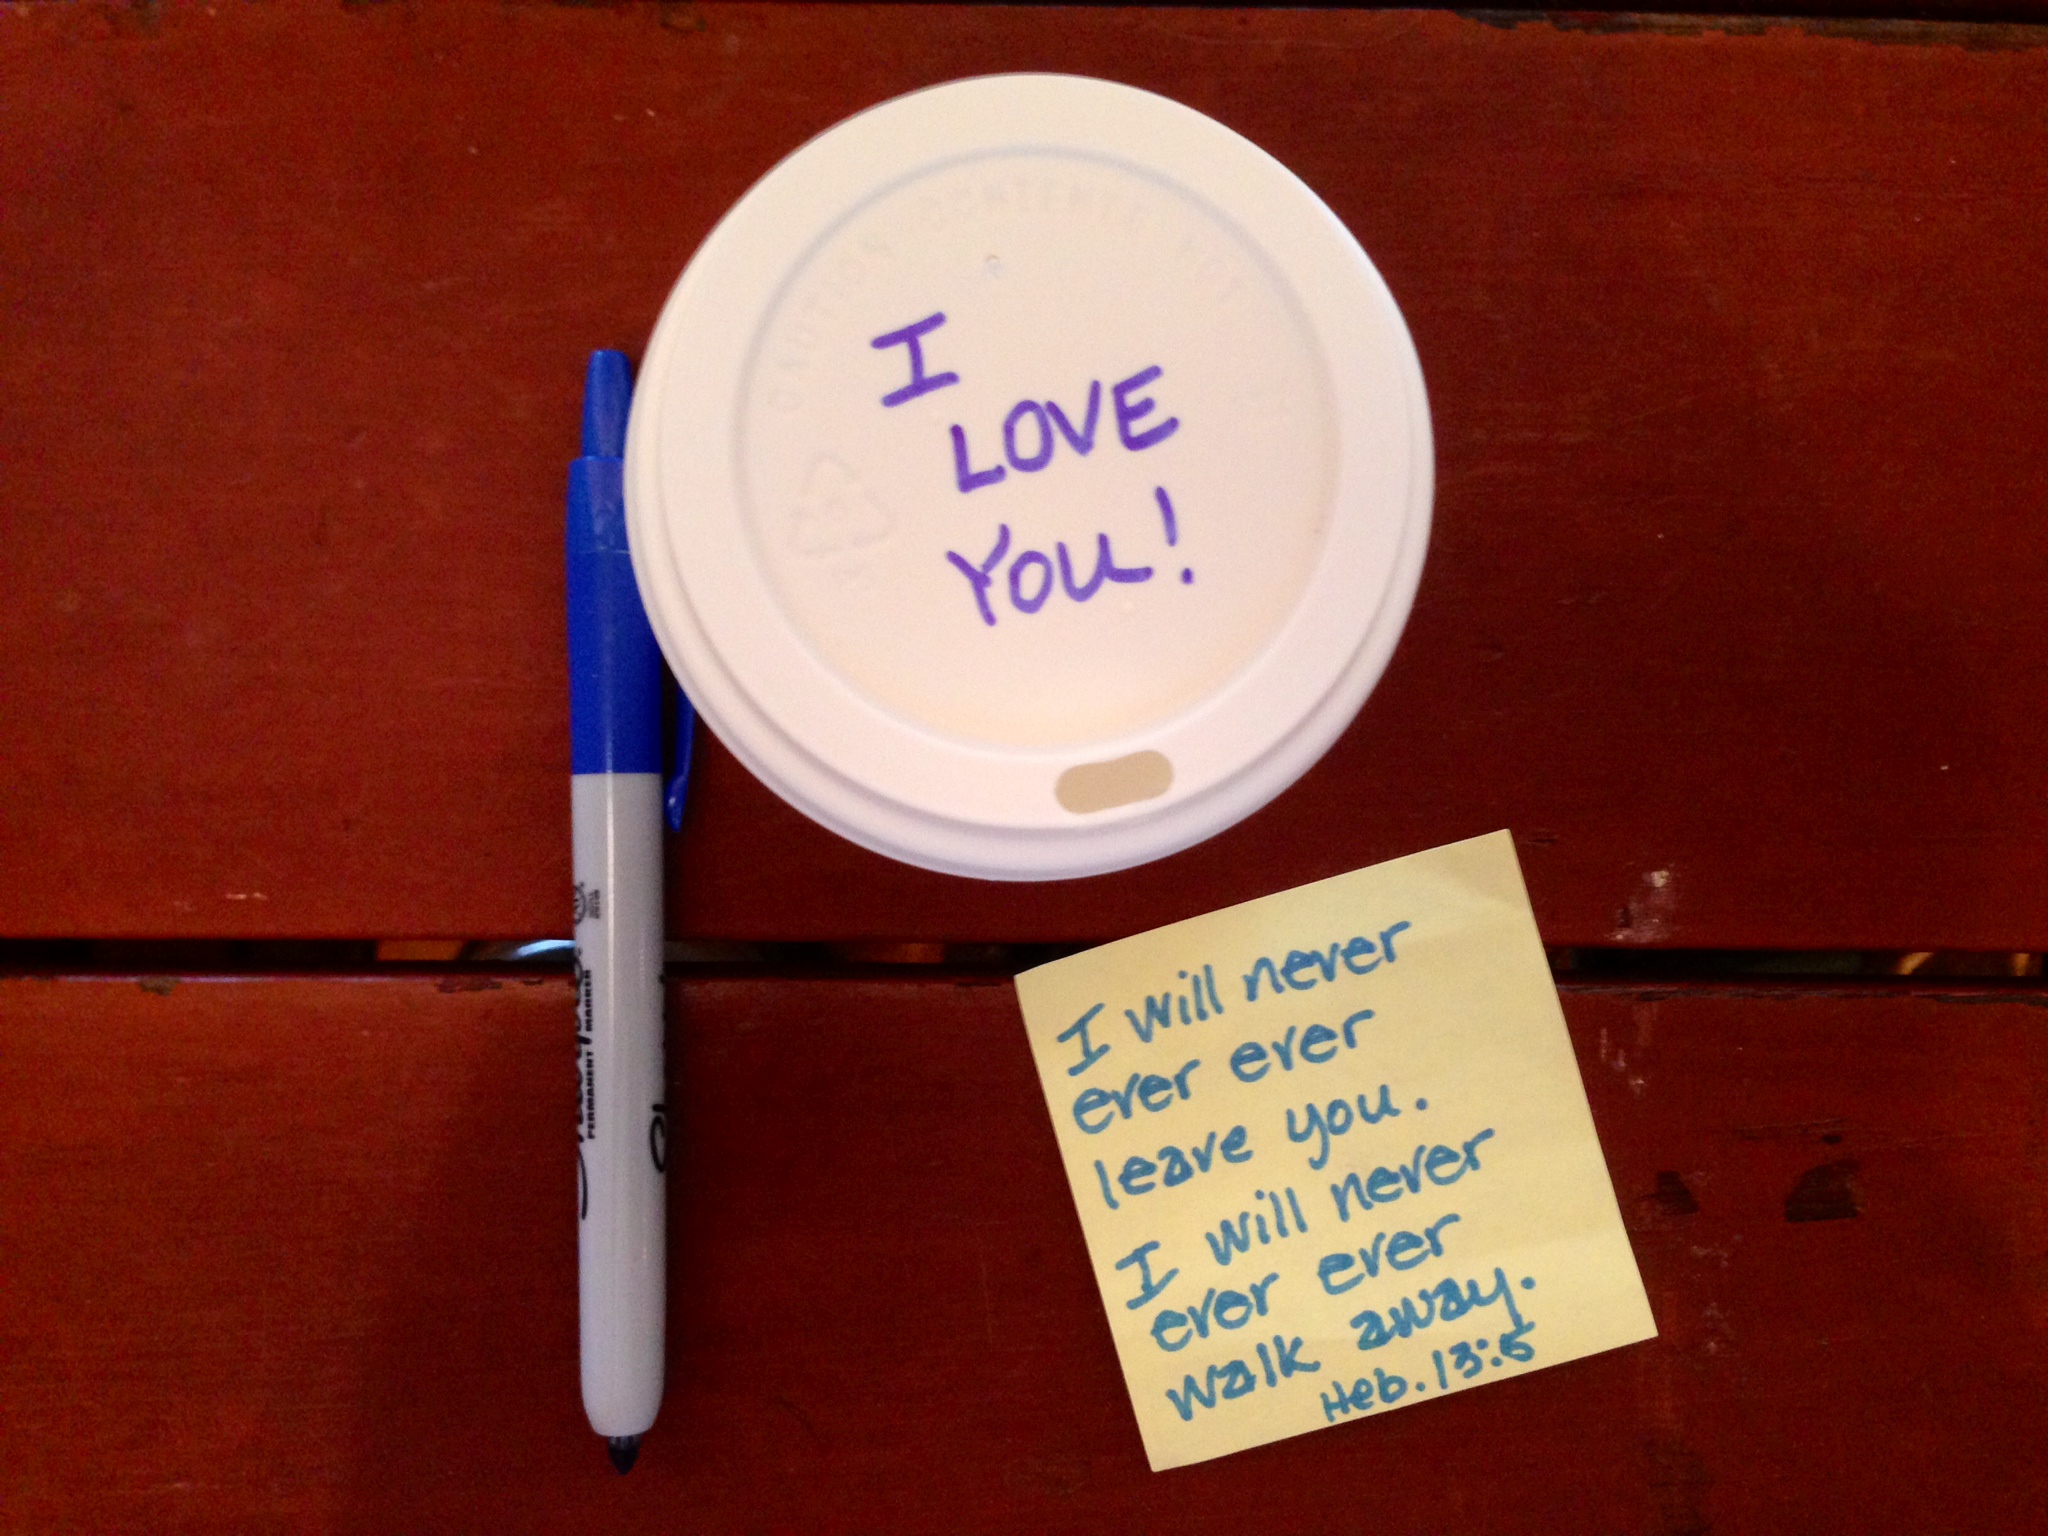 CAUTION CONTENTS HOT
I
LOVE
YOU!
Sharpie
PERMANENT MARKER
I will never
ever ever
leave you.
I will never
ever ever
walk away.
Heb. 13:5